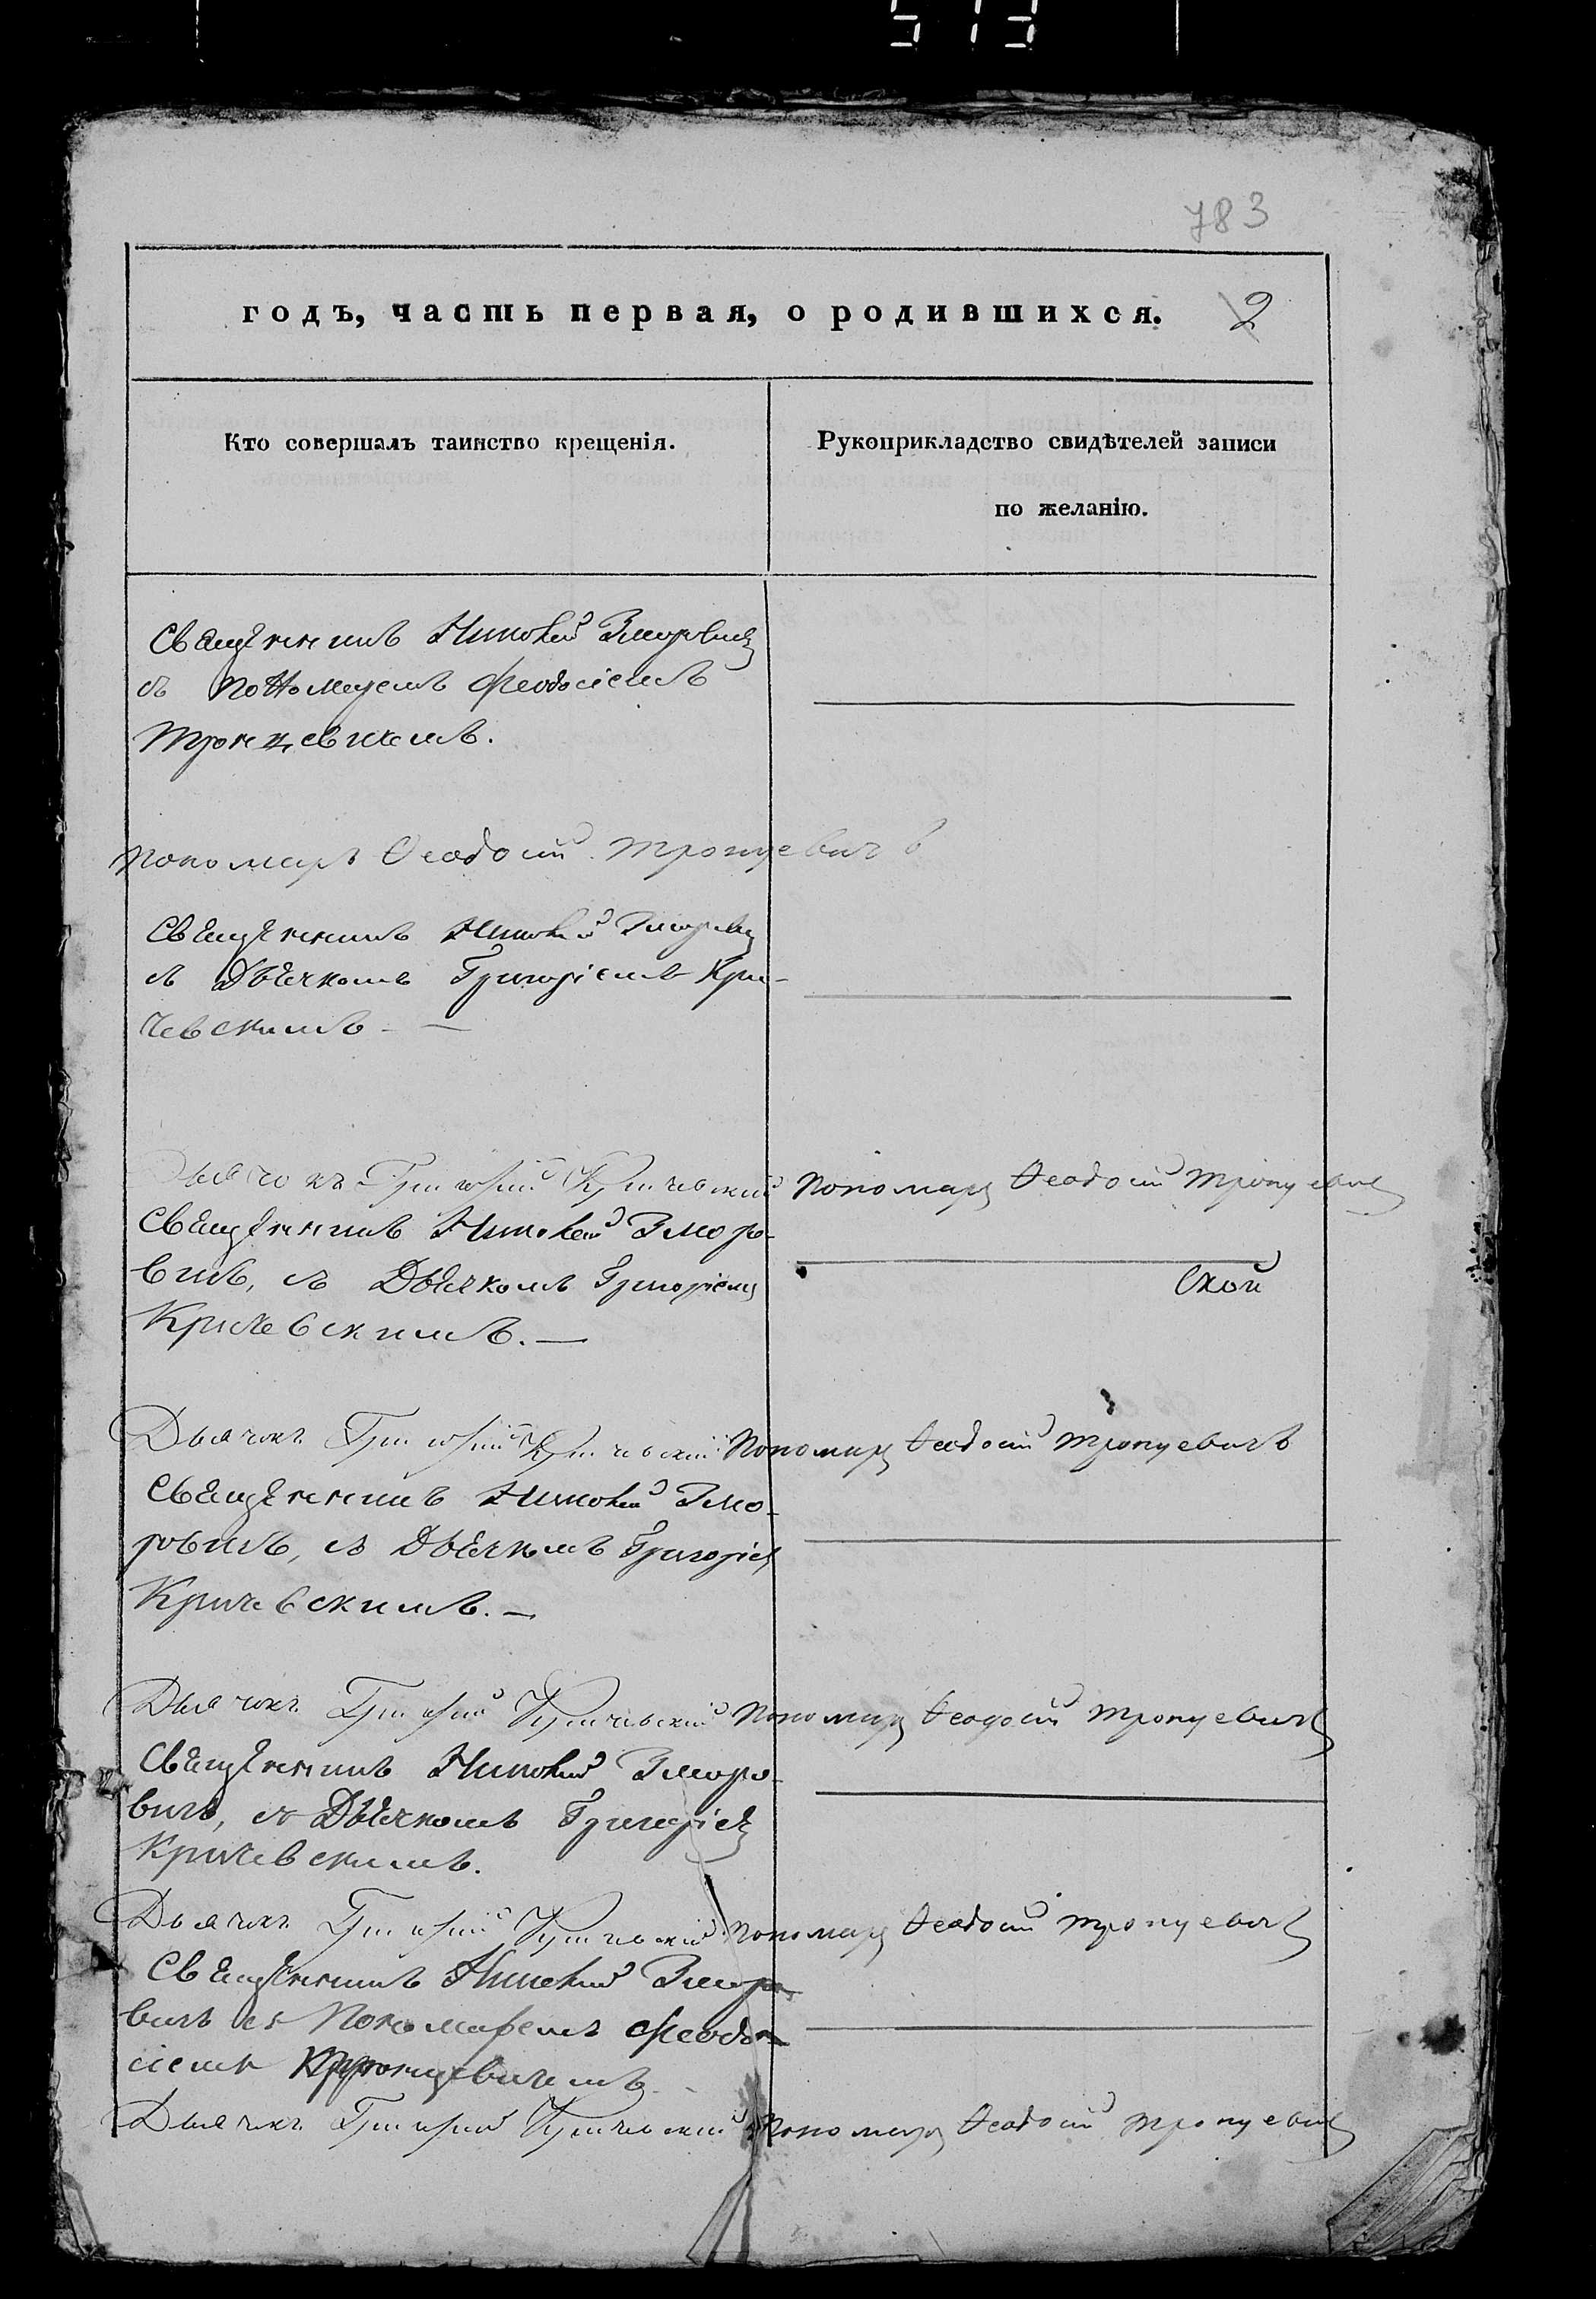 513
783
годъ, часть первая, о родившихся. 2
Кто совершалъ таинство крещенія.
Рукоприкладство свидѣтелей записи
по желанію.
Священникъ Зморовичъ
съ Пономаремъ Феодосіемъ
Тронцевичемъ.
Пономарь Ѳеодосий Тронцевичъ
Священникъ Зморовичъ
съ Дьячкомъ Григоріемъ Кри-
чевскимъ. —
Дьячокъ Григорий Кричевский Пономарь Ѳеодосий Тронцевичъ
Священникъ Зморо-
вичъ, съ Дьячкомъ Григоріемъ
Ской
Кричевскимъ. —
Дьячокъ Григорий Кричевский Пономарь Ѳеодосий Тронцевичъ
Священникъ Змо-
ровичъ, съ Дьячкомъ Григоріемъ
Кричевскимъ. —
Дьячокъ Григорий Кричевский Пономарь Ѳеодосий Тронцевичъ
Священникъ Зморо-
вичъ, съ Дьячкомъ Григоріемъ
Кричевскимъ.
Дьячокъ Григорий Кричевский Пономарь Ѳеодосий Тронцевичъ
Священникъ Зморо-
вичъ съ Пономаремъ Феодо-
сіемъ Тронцевичемъ
Дьячокъ Григорий Кричевский Пономарь Ѳеодосий Тронцевичъ